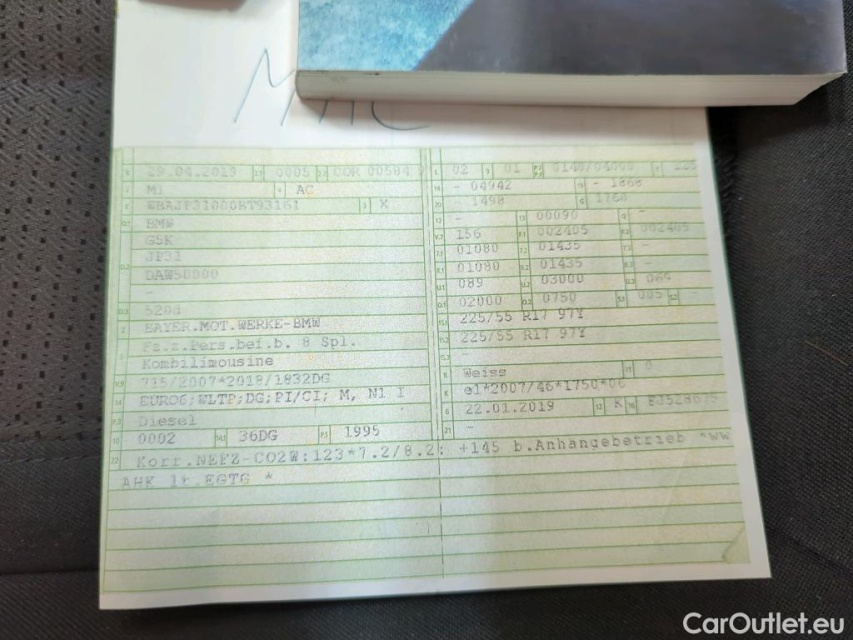 29.04.2019 0005
M1 AC
K
BMW
G5K
JP31
-
520d
BAYER.MOT.WERKE-BMW
Fz.z.Pers.bef.b. 8 Spl.
Kombilimousine
715/2007*2018/1832DG
EURO6;WLTP;DG;PI/CI; M, N1 I
Diesel
0002 36DG 1995
Korr.NEFZ-CO2W:123*7.2/8.2: +145 b.Anhängebetrieb *ww
AHK lt.EGTG *
02 01
- 04942 - 1868
1498
- 00090 -
156 002405 002405
01080 01435 -
01080 01435 -
089 03000 064
02000 0750 005 -
225/55 R17 97Y
225/55 R17 97Y
-
Weiss 0
e1*2007/46*1750*06
22.01.2019 K
-
CarOutlet.eu